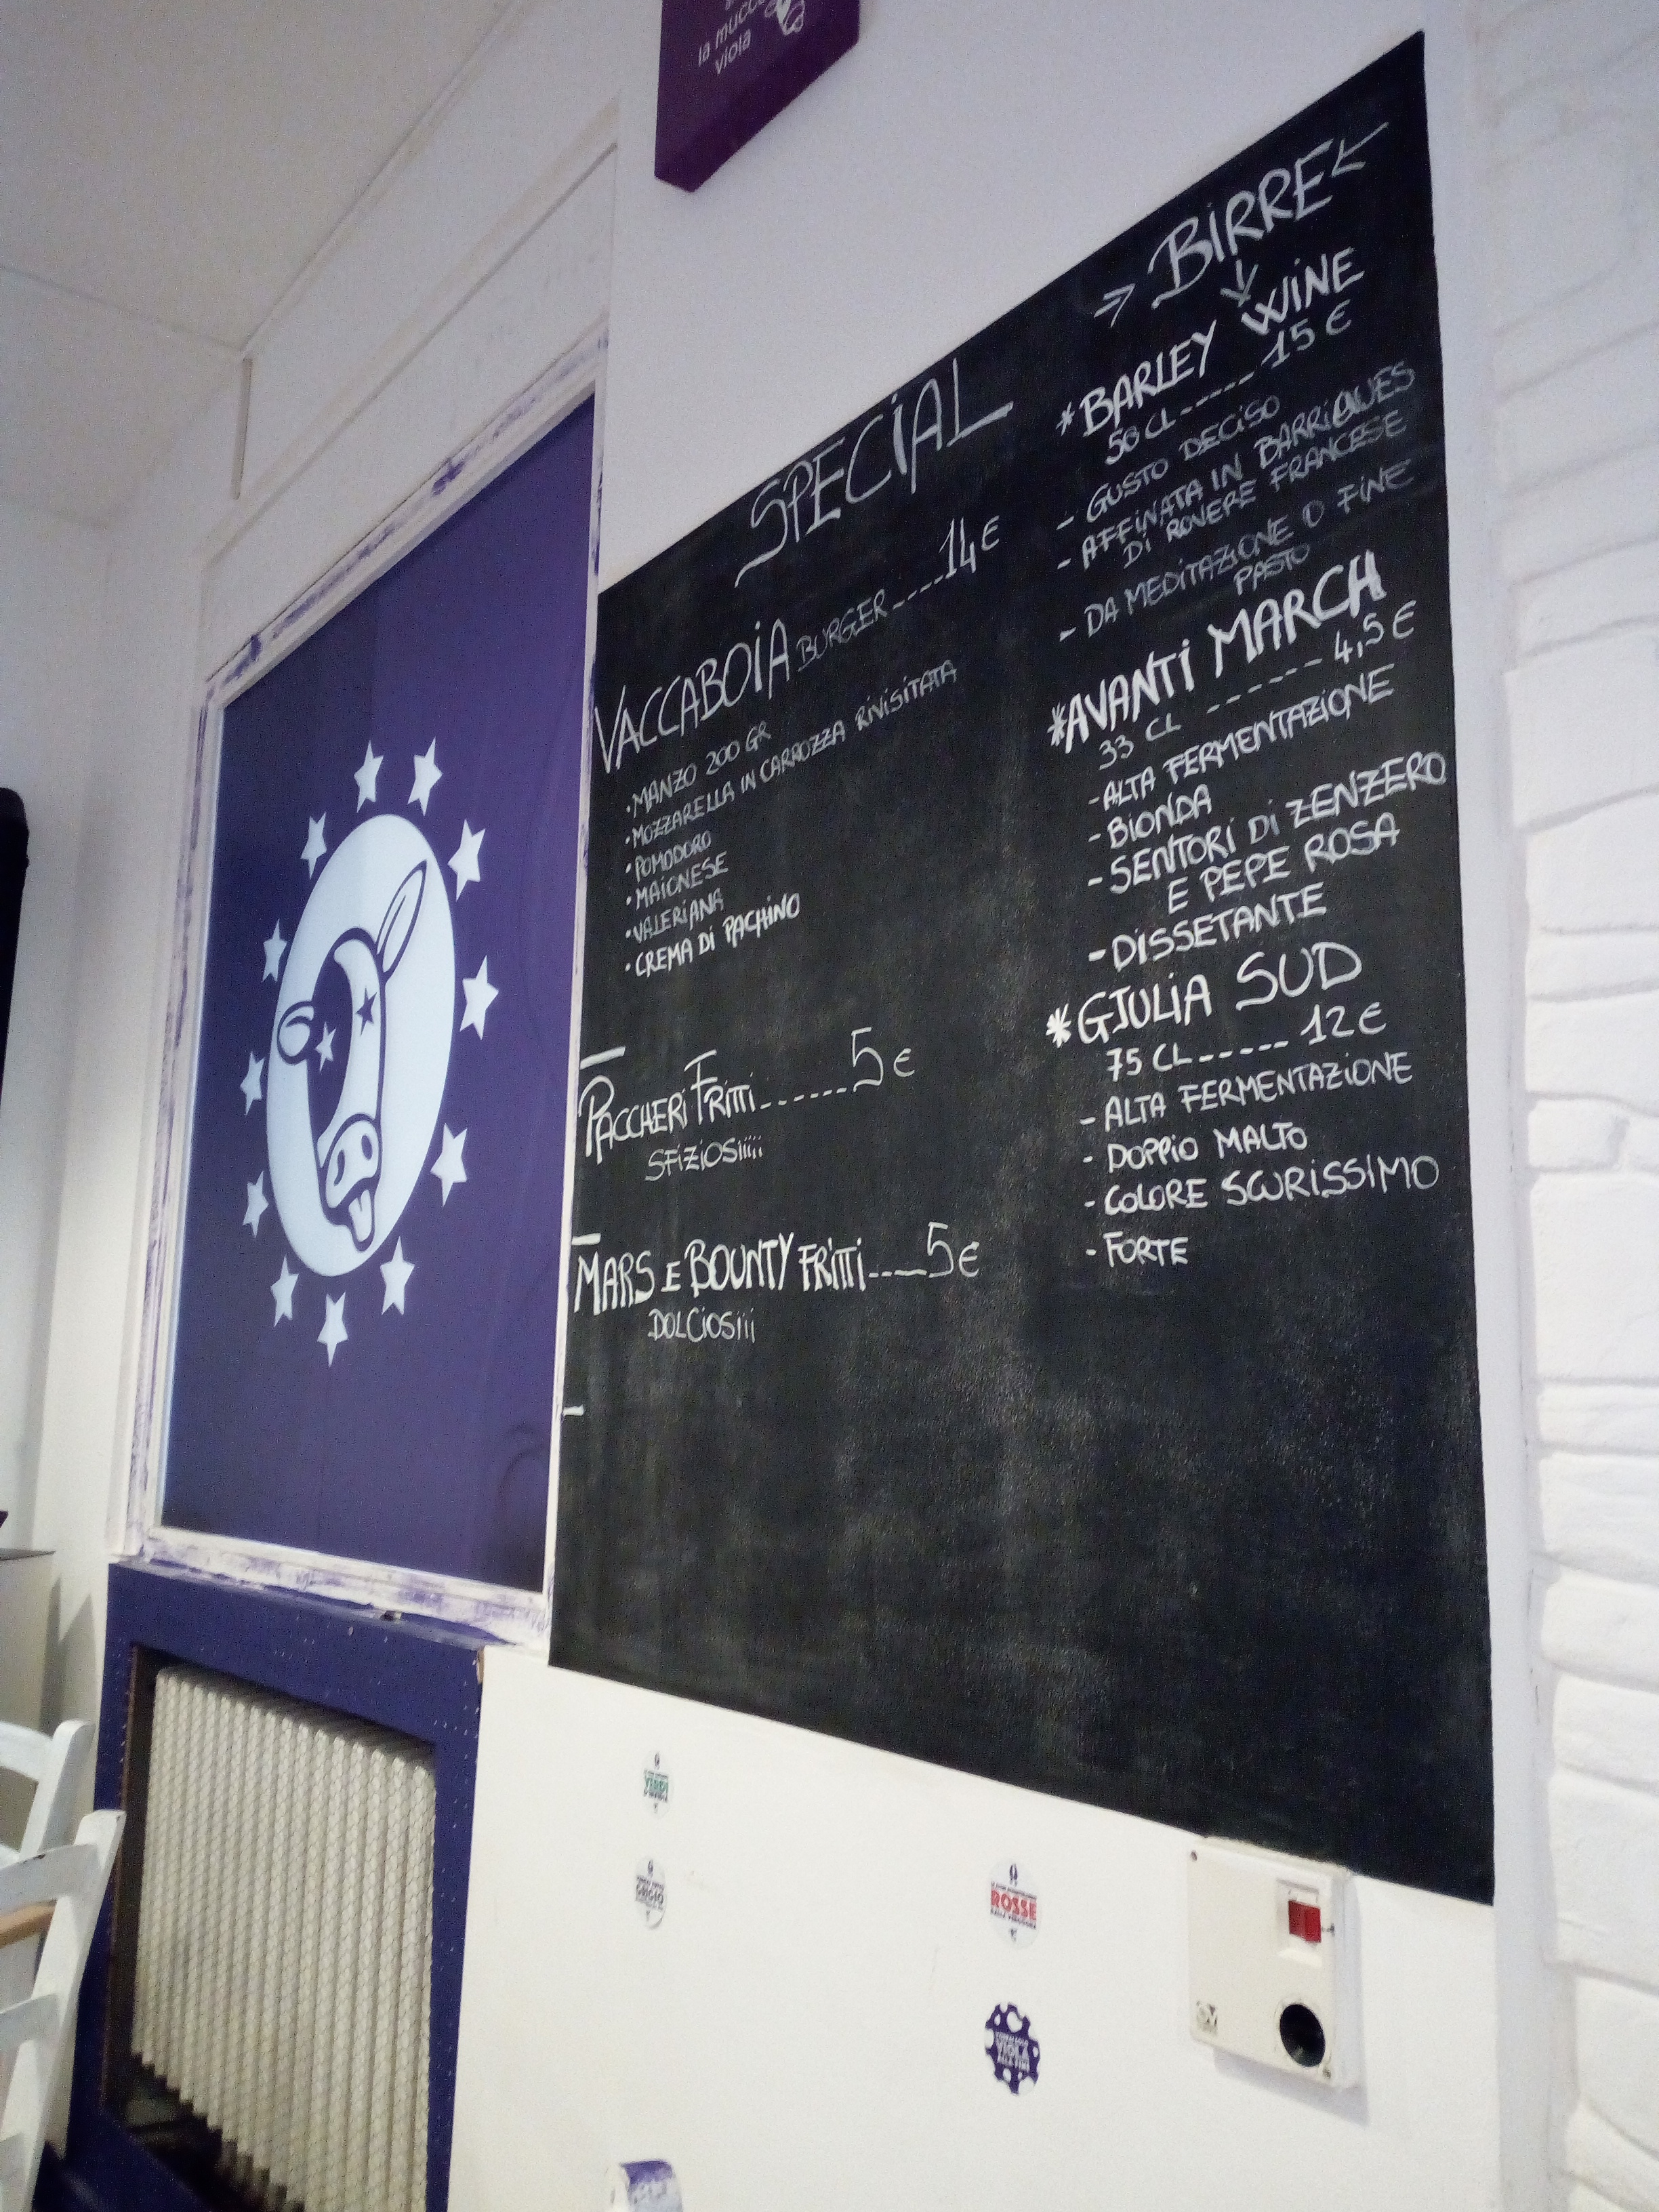 la mucca
viola
SPECIAL
VACCABOIA BURGER ---- 14€
• MANZO 200 GR
• MOZZARELLA IN CARROZZA RIVISITATA
• POMODORO
• MAIONESE
• VALERIANA
• CREMA DI PACHINO
PACCHERI FRITTI ------ 5€
SFIZIOSiiiii
MARS E BOUNTY FRITTI ---- 5€
DOLCIOSiii
→ BIRRE ←
* BARLEY WINE
50 CL ------ 15€
- GUSTO DECISO
- AFFINATA IN BARRIQUES
DI ROVERE FRANCESE
- DA MEDITAZIONE O FINE
PASTO
* AVANTI MARCH
33 CL ------ 4,5€
- ALTA FERMENTAZIONE
- BIONDA
- SENTORI DI ZENZERO
E PEPE ROSA
- DISSETANTE
* GIULIA SUD
75 CL ----- 12€
- ALTA FERMENTAZIONE
- DOPPIO MALTO
- COLORE SCURISSIMO
- FORTE
VERDI
GRIGIO
ROSSE
VIOLA